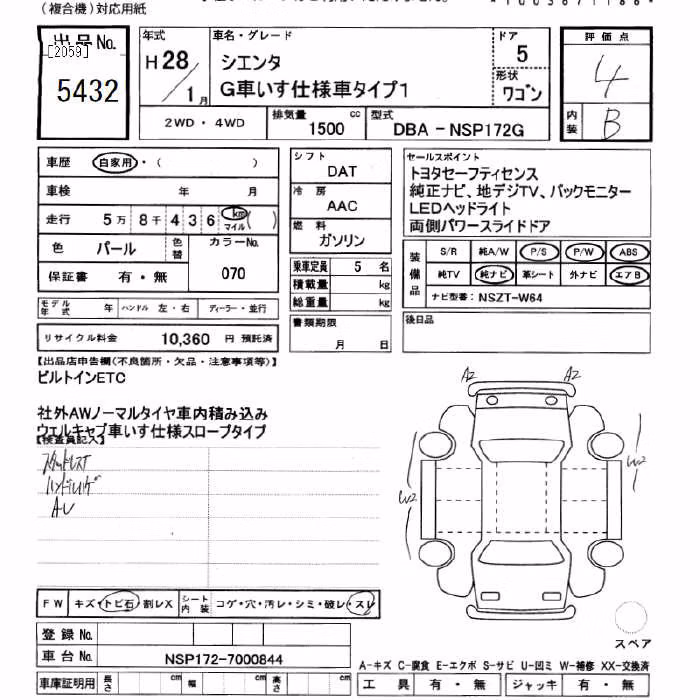 (複合機)対応用紙
出品No.
[2059]
5432
年式
H28/1月
車名・グレード
シエンタ
G車いす仕様車タイプ1
ドア
5
形状
ワゴン
評価点
4
内装
B
2WD・4WD
排気量
1500 cc
型式
DBA-NSP172G
車歴 自家用・( )
車検 年 月
走行 5万8千436 km マイル ( )
色 パール 色替
カラーNo.
070
保証書 有・無
モデル年式 年 ハンドル 左・右 ディーラー・並行
リサイクル料金 10,360 円 預託済
シフト
DAT
冷房
AAC
燃料
ガソリン
乗車定員 5 名
積載量 kg
総重量 kg
書類期限
月 日
セールスポイント
トヨタセーフティセンス
純正ナビ、地デジTV、バックモニター
LEDヘッドライト
両側パワースライドドア
装備品
S/R 純A/W P/S P/W ABS
純TV 純ナビ 革シート 外ナビ エアB
ナビ型番: NSZT-W64
後日品
【出品店申告欄(不良箇所・欠品・注意事項等)】
ビルトインETC
社外AWノーマルタイヤ車内積み込み
ウェルキャブ車いす仕様スロープタイプ
【検査員記入】
AU
A2 A2
W2 W2
FW キズ・トビ石・割レX シート内装 コゲ・穴・汚レ・シミ・破レ・スレ
スペア
登録No.
車台No. NSP172-7000844
車庫証明用 長さ cm 幅 cm 高さ cm
A-キズ C-腐食 E-エクボ S-サビ U-凹ミ W-補修 XX-交換済
工具 有・無 ジャッキ 有・無